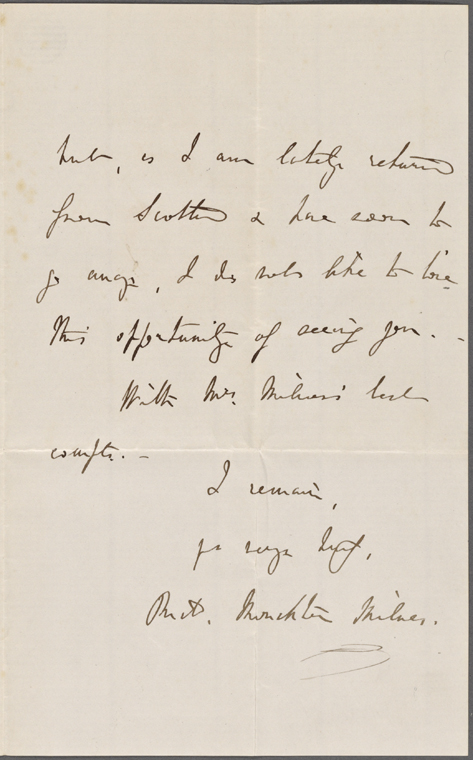 but, as I am lately returned
from Scotland & have soon to
go away, I do not like to lose
this opportunity of seeing you. -
With Mrs. Milnes' best
compts. -
I remain,
yrs very truly,
Richd. Monckton Milnes.